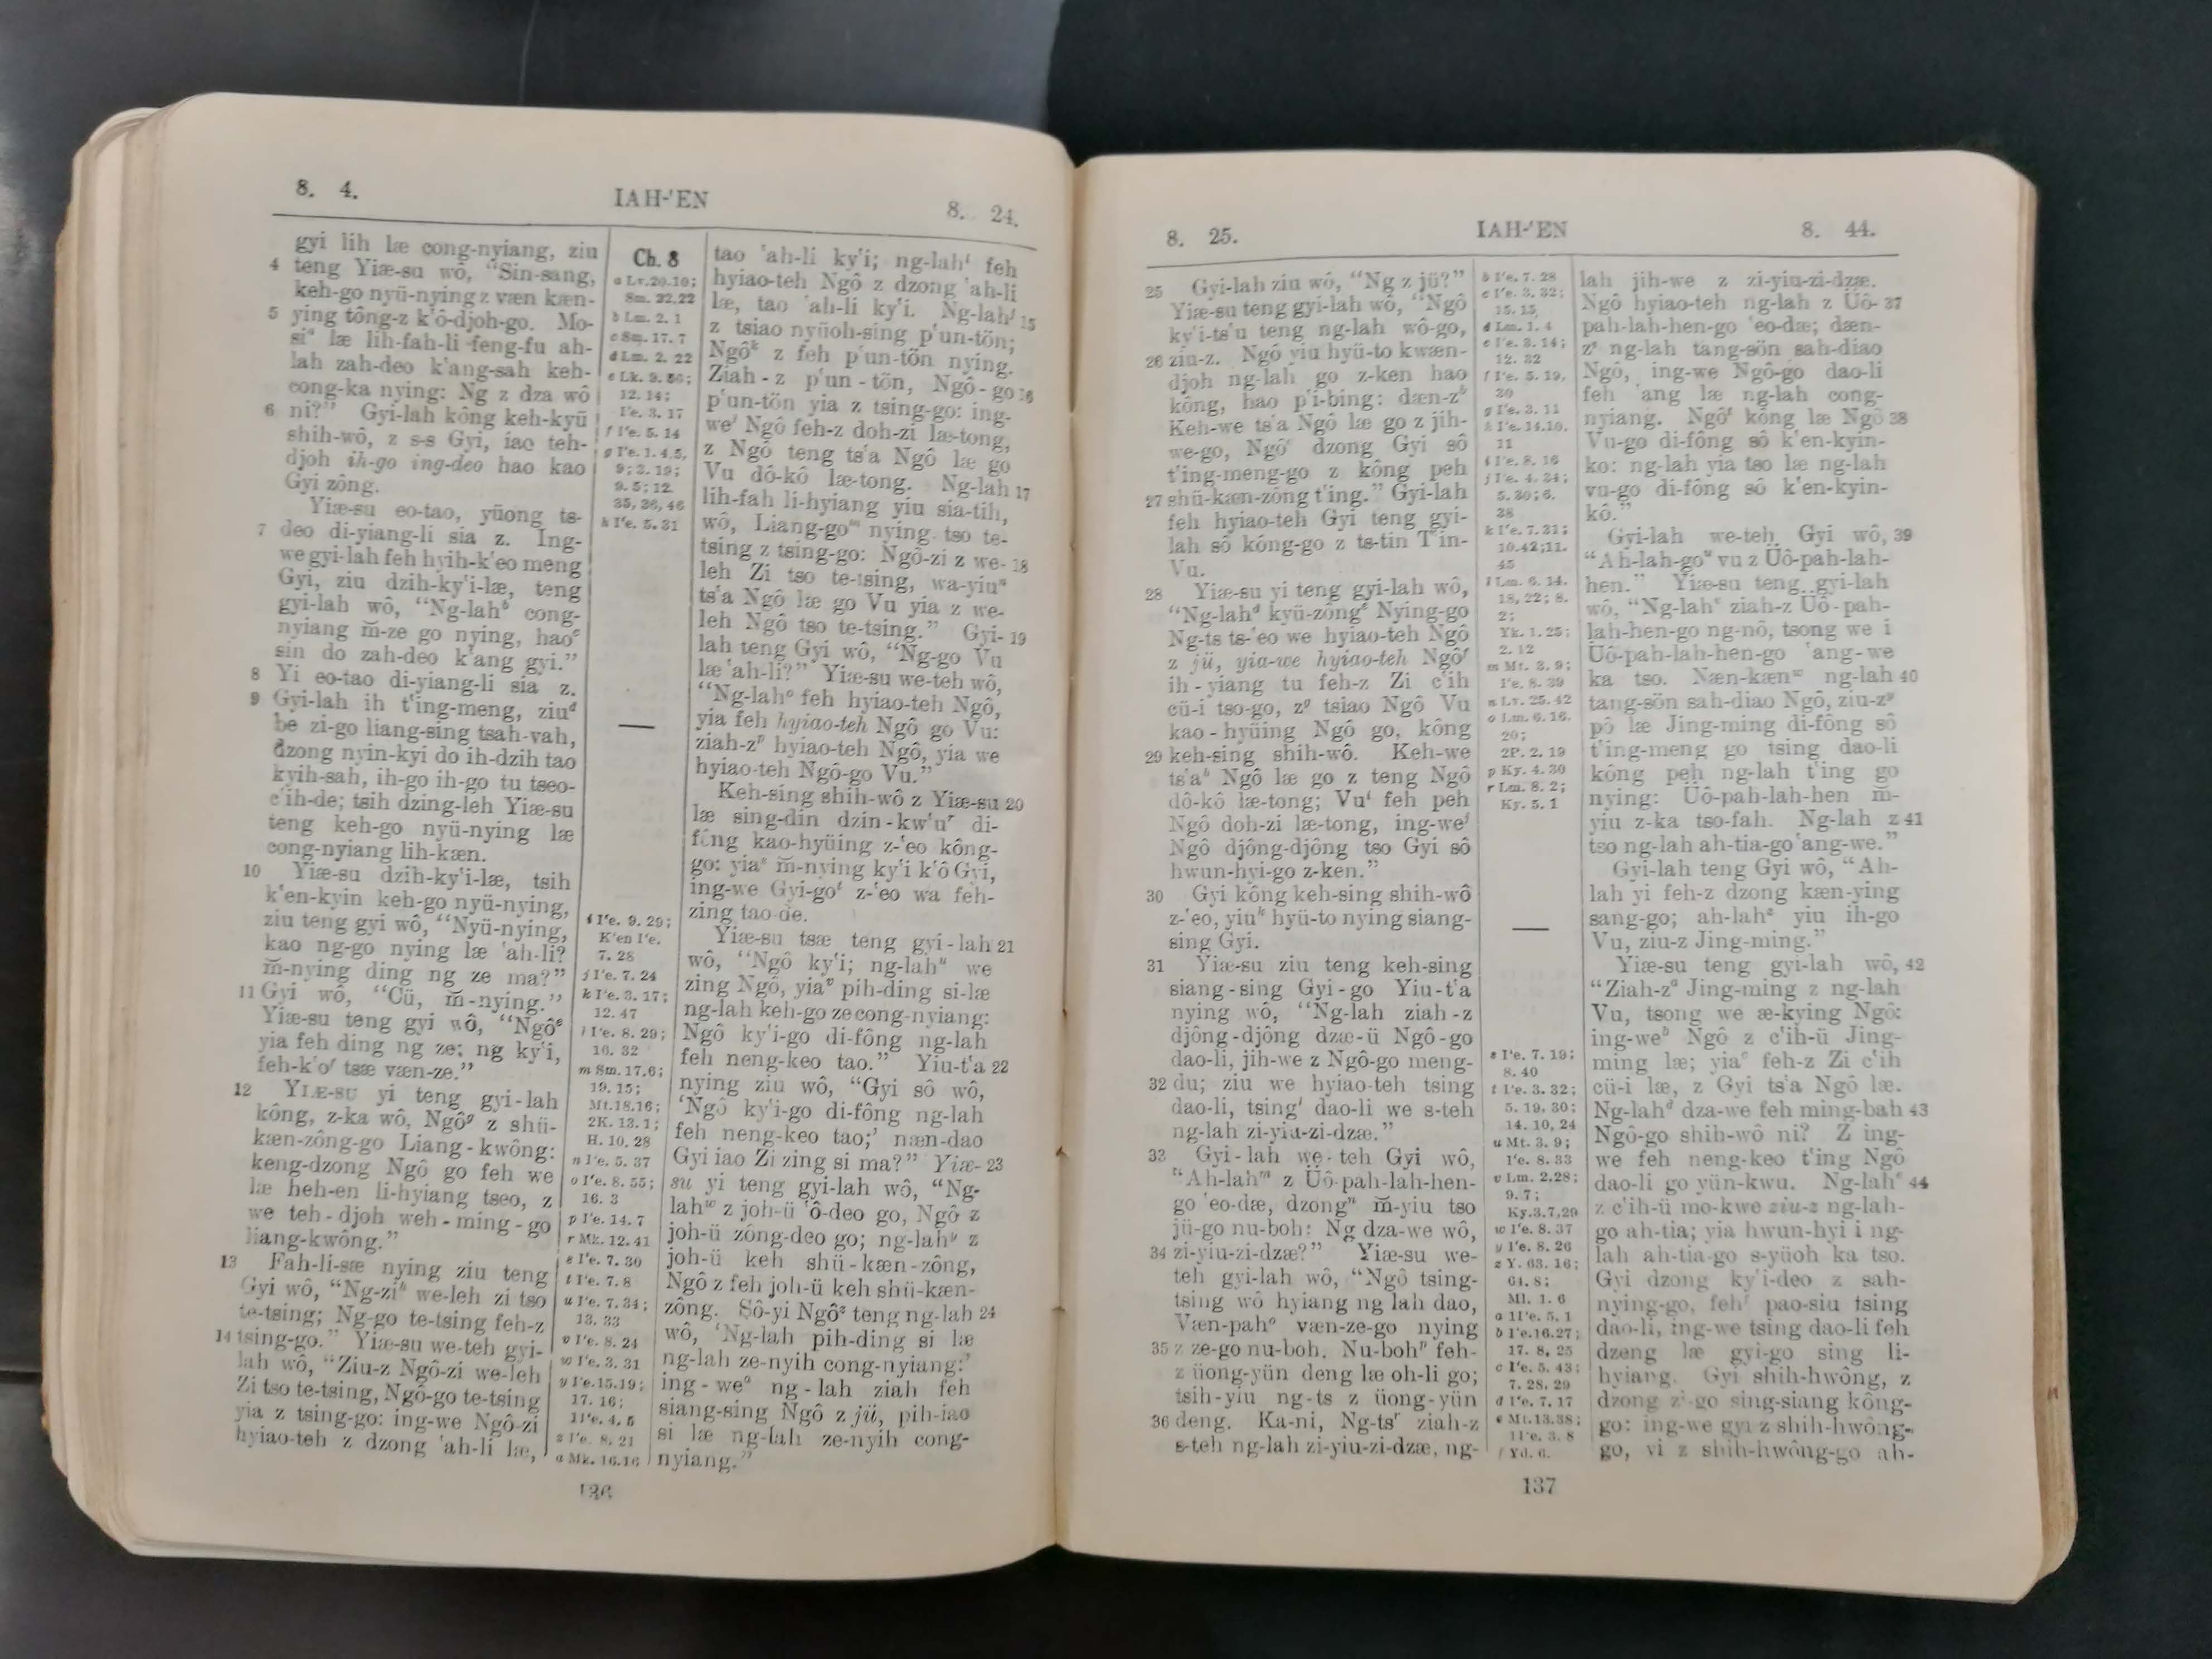 8. 4.
IAH-'EN
8. 24.
gyi lih læ cong-nyiang, ziu
4 teng Yiæ-su wô, “Sin-sang,
keh-go nyü-nying z væn kæn-
5 ying tông-z k'ô-djoh-go. Mo-
siᵃ læ lih-fah-li feng-fu ah-
lah zah-deo k'ang-sah keh-
cong-ka nying: Ng z dza wô
6 ni?” Gyi-lah kông keh-kyü
shih-wô, z s-s Gyi, iao teh-
djoh ih-go ing-deo hao kao
Gyi zông.
Yiæ-su eo-tao, yüong ts-
7 deo di-yiang-li sia z. Ing-
we gyi-lah feh hyih-k'eo meng
Gyi, ziu dzih-ky'i-læ, teng
gyi-lah wô, “Ng-lahᵇ cong-
nyiang m̆-ze go nying, haoᶜ
sin do zah-deo k'ang gyi.”
8 Yi eo-tao di-yiang-li sia z.
9 Gyi-lah ih t'ing-meng, ziuᵈ
be zi-go liang-sing tsah-vah,
dzong nyin-kyi do ih-dzih tao
kyih-sah, ih-go ih-go tu tseo-
c'ih-de; tsih dzing-leh Yiæ-su
teng keh-go nyü-nying læ
cong-nyiang lih-kæn.
10 Yiæ-su dzih-ky'i-læ, tsih
k'en-kyin keh-go nyü-nying,
ziu teng gyi wô, “Nyü-nying,
kao ng-go nying læ 'ah-li?
m̆-nying ding ng ze ma?”
11 Gyi wô, “Cü, m̆-nying.”
Yiæ-su teng gyi wô, “Ngôᵉ
yia feh ding ng ze: ng ky'i,
feh-k'oᶠ tsæ væn-ze.”
12 YIÆ-SU yi teng gyi-lah
kông, z-ka wô, Ngôᵍ z shü-
kæn-zông-go Liang-kwông:
keng-dzong Ngô go feh we
læ heh-en li-hyiang tseo, z
we teh-djoh weh-ming-go
liang-kwông.”
13 Fah-li-sæ nying ziu teng
Gyi wô, “Ng-ziʰ we-leh zi tso
te-tsing; Ng-go te-tsing feh-z
14 tsing-go.” Yiæ-su we-teh gyi-
lah wô, “Ziu-z Ngô-zi we-leh
Zi tso te-tsing, Ngô-go te-tsing
yia z tsing-go: ing-we Ngô-zi
hyiao-teh z dzong 'ah-li læ,
Ch. 8
a Lv.20.10;
Sm. 22.22
b Lm. 2. 1
c Sm. 17. 7
d Lm. 2. 22
e Lk. 9. 56;
12. 14;
I'e. 3. 17
f I'e. 5. 14
g I'e. 1. 4,5,
9; 3. 19;
9. 5; 12.
35, 36, 46
h I'e. 5. 31
i I'e. 9. 29;
K'en I'e.
7. 28
j I'e. 7. 24
k I'e. 3. 17;
12. 47
l I'e. 8. 29;
16. 32
m Sm. 17.6;
19. 15;
Mt.18.16;
2K. 13. 1;
H. 10. 28
n I'e. 5. 37
o I'e. 8. 55;
16. 3
p I'e. 14. 7
r Mk. 12. 41
s I'e. 7. 30
t I'e. 7. 8
u I'e. 7. 34;
13. 33
v I'e. 8. 24
w I'e. 3. 31
y I'e.15.19;
17. 16;
1I'e. 4. 5
z I'e. 8. 21
a Mk. 16.16
tao 'ah-li ky'i; ng-lahⁱ feh
hyiao-teh Ngô z dzong 'ah-li
læ, tao 'ah-li ky'i. Ng-lahʲ 15
z tsiao nyüoh-sing p'un-tön;
Ngôᵏ z feh p'un-tön nying.
Ziah-z p'un-tön, Ngô-go 16
p'un-tön yia z tsing-go: ing-
weˡ Ngô feh-z doh-zi læ-tong,
z Ngô teng ts'a Ngô læ go
Vu dô-kô læ-tong. Ng-lah 17
lih-fah li-hyiang yiu sia-tih,
wô, Liang-goᵐ nying tso te-
tsing z tsing-go: Ngô-zi z we- 18
leh Zi tso te-tsing, wa-yiuⁿ
ts'a Ngô læ go Vu yia z we-
leh Ngô tso te-tsing.” Gyi- 19
lah teng Gyi wô, “Ng-go Vu
læ 'ah-li?” Yiæ-su we-teh wô,
“Ng-lahᵒ feh hyiao-teh Ngô,
yia feh hyiao-teh Ngô go Vu:
ziah-zᵖ hyiao-teh Ngô, yia we
hyiao-teh Ngô-go Vu.”
Keh-sing shih-wô z Yiæ-su 20
læ sing-din dzin-kw'uʳ di-
fông kao-hyüing z-'eo kông-
go: yiaˢ m̆-nying ky'i k'ô Gyi,
ing-we Gyi-goᵗ z-'eo wa feh-
zing tao-de.
Yiæ-su tsæ teng gyi-lah 21
wô, “Ngô ky'i; ng-lahᵘ we
zing Ngô, yiaᵛ pih-ding si-læ
ng-lah keh-go ze cong-nyiang:
Ngô ky'i-go di-fông ng-lah
feh neng-keo tao.” Yiu-t'a 22
nying ziu wô, “Gyi sô wô,
‘Ngô ky'i-go di-fông ng-lah
feh neng-keo tao;’ næn-dao
Gyi iao Zi zing si ma?” Yiæ- 23
su yi teng gyi-lah wô, “Ng-
lahʷ z joh-ü 'ô-deo go, Ngô z
joh-ü zông-deo go; ng-lahʸ z
joh-ü keh shü-kæn-zông,
Ngô z feh joh-ü keh shü-kæn-
zông. Sô-yi Ngôᶻ teng ng-lah 24
wô, ‘Ng-lah pih-ding si læ
ng-lah ze-nyih cong-nyiang:’
ing-weᵃ ng-lah ziah feh
siang-sing Ngô z jü, pih-iao
si læ ng-lah ze-nyih cong-
nyiang.”
136
8. 25.
IAH-'EN
8. 44.
25 Gyi-lah ziu wô, “Ng z jü?”
Yiæ-su teng gyi-lah wô, “Ngô
ky'i-ts'u teng ng-lah wô-go,
26 ziu-z. Ngô yiu hyü-to kwæn-
djoh ng-lah go z-ken hao
kông, hao p'i-bing: dæn-zᵇ
Keh-we ts'a Ngô læ go z jih-
we-go, Ngôᶜ dzong Gyi sô
t'ing-meng-go z kông peh
27 shü-kæn-zông t'ing.” Gyi-lah
feh hyiao-teh Gyi teng gyi-
lah sô kông-go z ts-tin T'in-
Vu.
28 Yiæ-su yi teng gyi-lah wô,
“Ng-lahᵈ kyü-zôngᵉ Nying-go
Ng-ts ts-'eo we hyiao-teh Ngô
z jü, yia-we hyiao-teh Ngôᶠ
ih-yiang tu feh-z Zi c'ih
cü-i tso-go, zᵍ tsiao Ngô Vu
kao-hyüing Ngô go, kông
29 keh-sing shih-wô. Keh-we
ts'aʰ Ngô læ go z teng Ngô
dô-kô læ-tong; Vuⁱ feh peh
Ngô doh-zi læ-tong, ing-weʲ
Ngô djông-djông tso Gyi sô
hwun-hyi-go z-ken.”
30 Gyi kông keh-sing shih-wô
z-'eo, yiuᵏ hyü-to nying siang-
sing Gyi.
31 Yiæ-su ziu teng keh-sing
siang-sing Gyi-go Yiu-t'a
nying wô, “Ng-lah ziah-z
djông-djông dzæ-ü Ngô-go
dao-li, jih-we z Ngô-go meng-
32 du; ziu we hyiao-teh tsing
dao-li, tsingˡ dao-li we s-teh
ng-lah zi-yiu-zi-dzæ.”
33 Gyi-lah we-teh Gyi wô,
“Ah-lahᵐ z Üô-pah-lah-hen-
go 'eo-dæ, dzongⁿ m̆-yiu tso
jü-go nu-boh: Ng dza-we wô,
34 zi-yiu-zi-dzæ?” Yiæ-su we-
teh gyi-lah wô, “Ngô tsing-
tsing wô hyiang ng lah dao,
Væn-pahᵒ væn-ze-go nying
35 z ze-go nu-boh. Nu-bohᵖ feh-
z üong-yün deng læ oh-li go;
tsih-yiu ng-ts z üong-yün
36 deng. Ka-ni, Ng-tsʳ ziah-z
s-teh ng-lah zi-yiu-zi-dzæ, ng-
b I'e. 7. 28
c I'e. 3. 32;
15. 15,
d Lm. 1. 4
e I'e. 3. 14;
12. 32
f I'e. 5. 19,
30
g I'e. 3. 11
h I'e. 14.10,
11
i I'e. 8. 16
j I'e. 4. 34;
5. 30; 6.
38
k I'e. 7. 31;
10.42;11.
45
l Lm. 6. 14.
18, 22; 8.
2;
Yk. 1. 25;
2. 12
m Mt. 3. 9;
I'e. 8. 39
n Lv. 25. 42
o Lm. 6. 16.
20;
2P. 2. 19
p Ky. 4. 30
r Lm. 8. 2;
Ky. 5. 1
s I'e. 7. 19;
8. 40
t I'e. 3. 32;
5. 19, 30;
14. 10, 24
u Mt. 3. 9;
I'e. 8. 33
v Lm. 2.28;
9. 7;
Ky.3.7,29
w I'e. 8. 37
y I'e. 8. 26
z Y. 63. 16;
64. 8;
Ml. 1. 6
a 1I'e. 5. 1
b I'e.16.27;
17. 8, 25
c I'e. 5. 43;
7. 28, 29
d I'e. 7. 17
e Mt.13.38;
1I'e. 3. 8
f Yd. 6.
lah jih-we z zi-yiu-zi-dzæ.
Ngô hyiao-teh ng-lah z Üô- 37
pah-lah-hen-go 'eo-dæ; dæn-
zˢ ng-lah tang-sön sah-diao
Ngô, ing-we Ngô-go dao-li
feh 'ang læ ng-lah cong-
nyiang. Ngôᵗ kông læ Ngô 38
Vu-go di-fông sô k'en-kyin-
ko: ng-lah yia tso læ ng-lah
vu-go di-fông sô k'en-kyin-
kô.”
Gyi-lah we-teh Gyi wô, 39
“Ah-lah-goᵘ vu z Üô-pah-lah-
hen.” Yiæ-su teng gyi-lah
wô, “Ng-lahᵛ ziah-z Üô-pah-
lah-hen-go ng-nô, tsong we i
Üô-pah-lah-hen-go 'ang-we
ka tso. Næn-kænʷ ng-lah 40
tang-sön sah-diao Ngô, ziu-zʸ
pô læ Jing-ming di-fông sô
t'ing-meng go tsing dao-li
kông peh ng-lah t'ing go
nying: Üô-pah-lah-hen m̆-
yiu z-ka tso-fah. Ng-lah z 41
tso ng-lah ah-tia-go 'ang-we.”
Gyi-lah teng Gyi wô, “Ah-
lah yi feh-z dzong kæn-ying
sang-go; ah-lahᶻ yiu ih-go
Vu, ziu-z Jing-ming.”
Yiæ-su teng gyi-lah wô, 42
“Ziah-zᵃ Jing-ming z ng-lah
Vu, tsong we æ-kying Ngô:
ing-weᵇ Ngô z c'ih-ü Jing-
ming læ; yiaᶜ feh-z Zi c'ih
cü-i læ, z Gyi ts'a Ngô læ.
Ng-lahᵈ dza-we feh ming-bah 43
Ngô-go shih-wô ni? Z ing-
we feh neng-keo t'ing Ngô
dao-li go yün-kwu. Ng-lahᵉ 44
z c'ih-ü mo-kwe ziu-z ng-lah-
go ah-tia; yia hwun-hyi i ng-
lah ah-tia-go s-yüoh ka tso.
Gyi dzong ky'i-deo z sah-
nying-go, fehᶠ pao-siu tsing
dao-li, ing-we tsing dao-li feh
dzeng læ gyi-go sing li-
hyiang. Gyi shih-hwông, z
dzong zi-go sing-siang kông-
go: ing-we gyi z shih-hwông-
go, yi z shih-hwông-go ah-
137